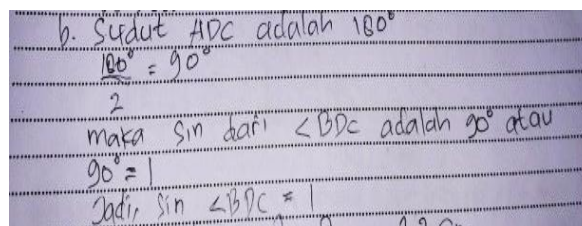 b. Sudut ADC adalah 180°
180°/2 = 90°
maka Sin dari ∠BDC adalah 90° atau
90° = 1
Jadi, Sin ∠BDC = 1